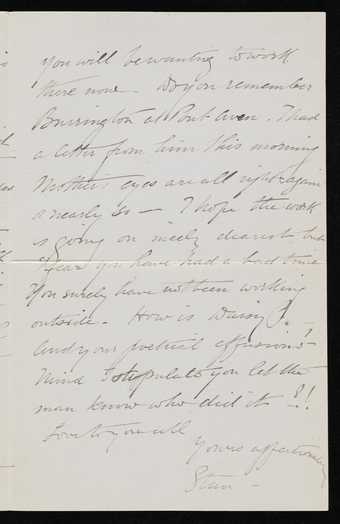 you will be wanting to work
there now. Do you remember
Burrington at Pont Aven. I had
a letter from him this morning
Mother's eyes are all right again
or nearly so — I hope the work
is going on nicely dearest but
I fear you have had a bad time
You surely have not been working
outside. How is Daisy?!
And your poetical effusions?
Mind I stipulate you let the
man know who did it?!!
Love to you all
Yours affectionately
Stan —